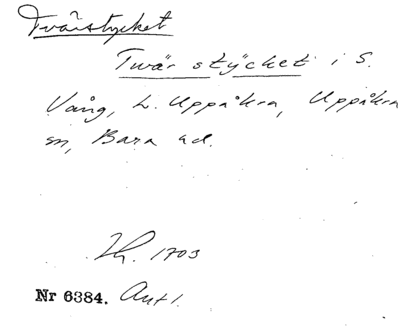 Tvärstycket
Twär stÿcket i S.
Vång, L. Uppåkra, Uppåkra
sn, Bara hd.
Lh. 1703
Nr 6384. Ant 1.